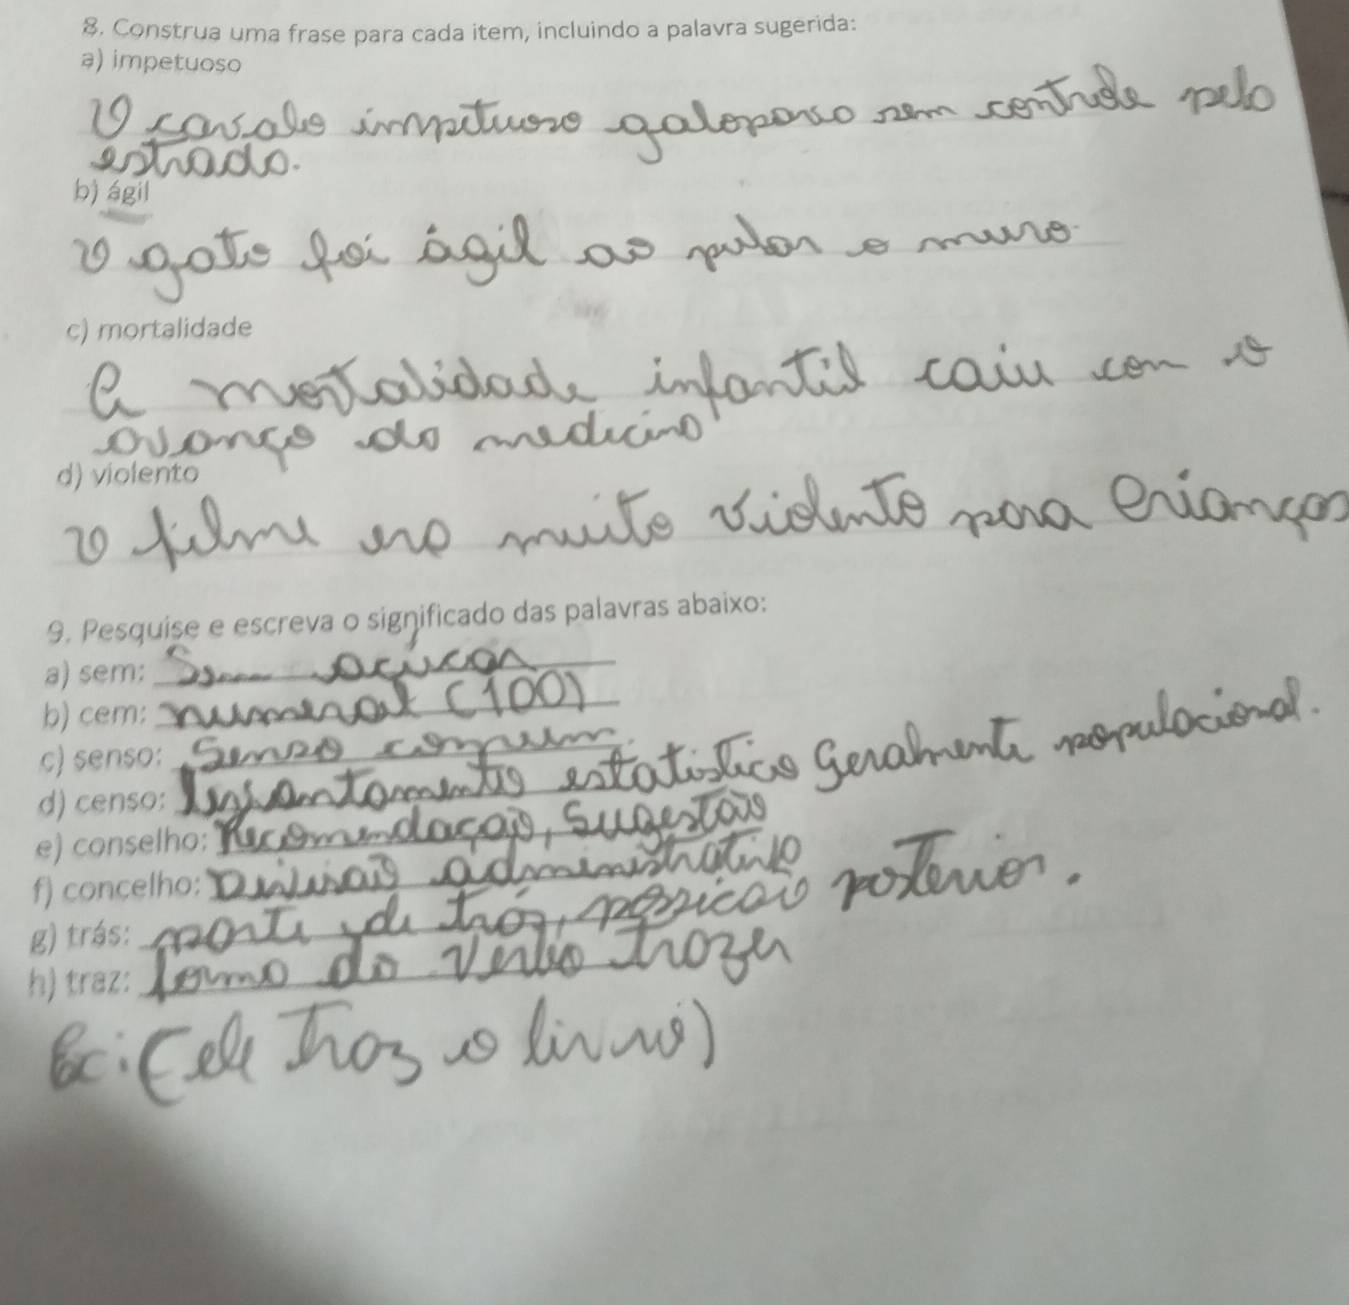 8. Construa uma frase para cada item, incluindo a palavra sugerida:
a) impetuoso
O cavalo impetuoso galopava sem controle pelo
estrada.
b) ágil
O gato foi ágil ao pular o muro.
c) mortalidade
A mortalidade infantil caiu com o
avanço da medicina
d) violento
O filme era muito violento para crianças
9. Pesquise e escreva o significado das palavras abaixo:
a) sem: Sem açúcar
b) cem: numeral (100)
c) senso: Senso comum.
d) censo: levantamento estatístico geralmente populacional.
e) conselho: Recomendação, Sugestão
f) concelho: Divisão administrativa
g) trás: parte de trás, posição posterior.
h) traz: forma do verbo trazer
Ex: (ele traz o livro)